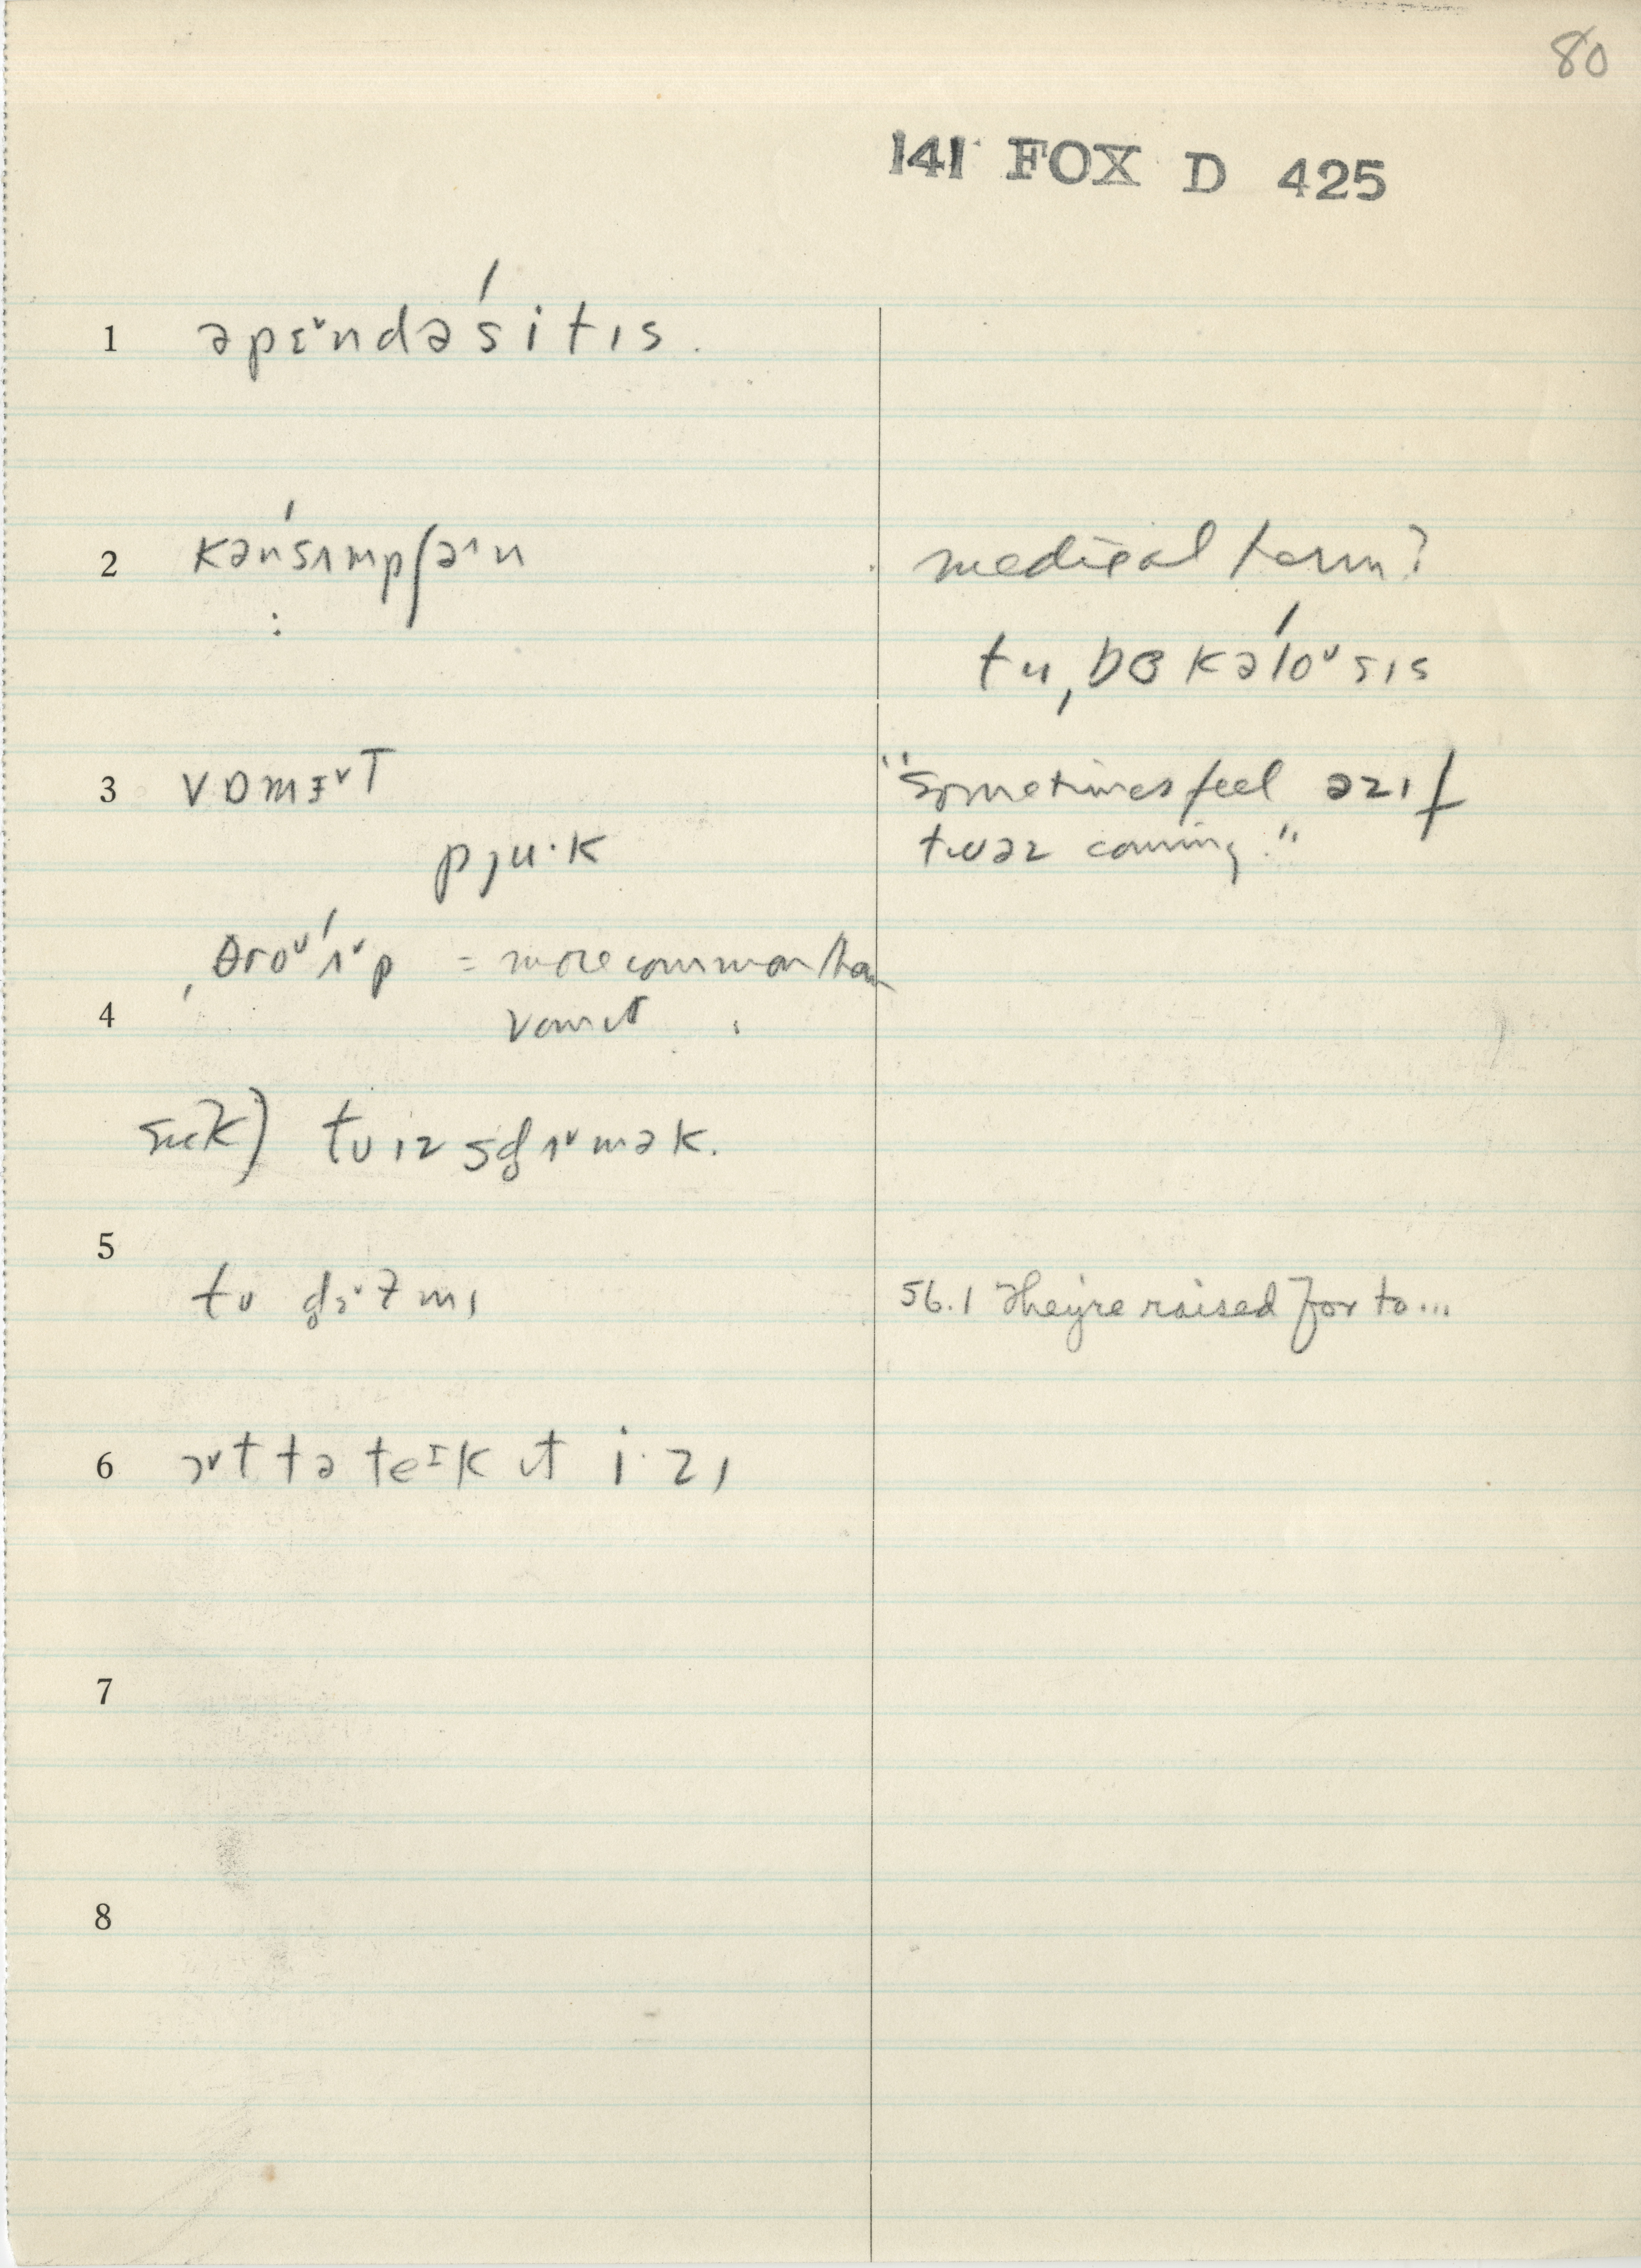 80
141 FOX D 425
1 əpɛ˅ndəˈsitɪs.
2 kənˈsʌmpʃə˄n
medical term?
tuˌbɞkəˈloᵛsɪs
3 vɒmɪ˅T
"Sometimes feel əzɪf
pju·k
twəz coming."
ˌθroᵛˈʌ˅p = more common than
4 vomit
sick) tʊ ɪz sɟʌ˅mək.
5
tʊ
mɪ
56.1 They're raised for to...
6 ɔ˅t tə teɪk ɪt i·zɪ
7
8